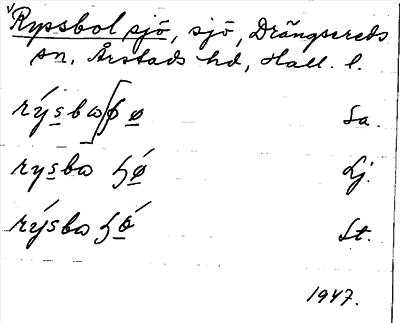 Ryssbol sjö, sjö, Drängsereds
sn, Årstads hd, Hall. l.
rýsbω ɧø Sa.
rysbω ɧǿ Lj.
rýsbω ɧǿ St.
1947.